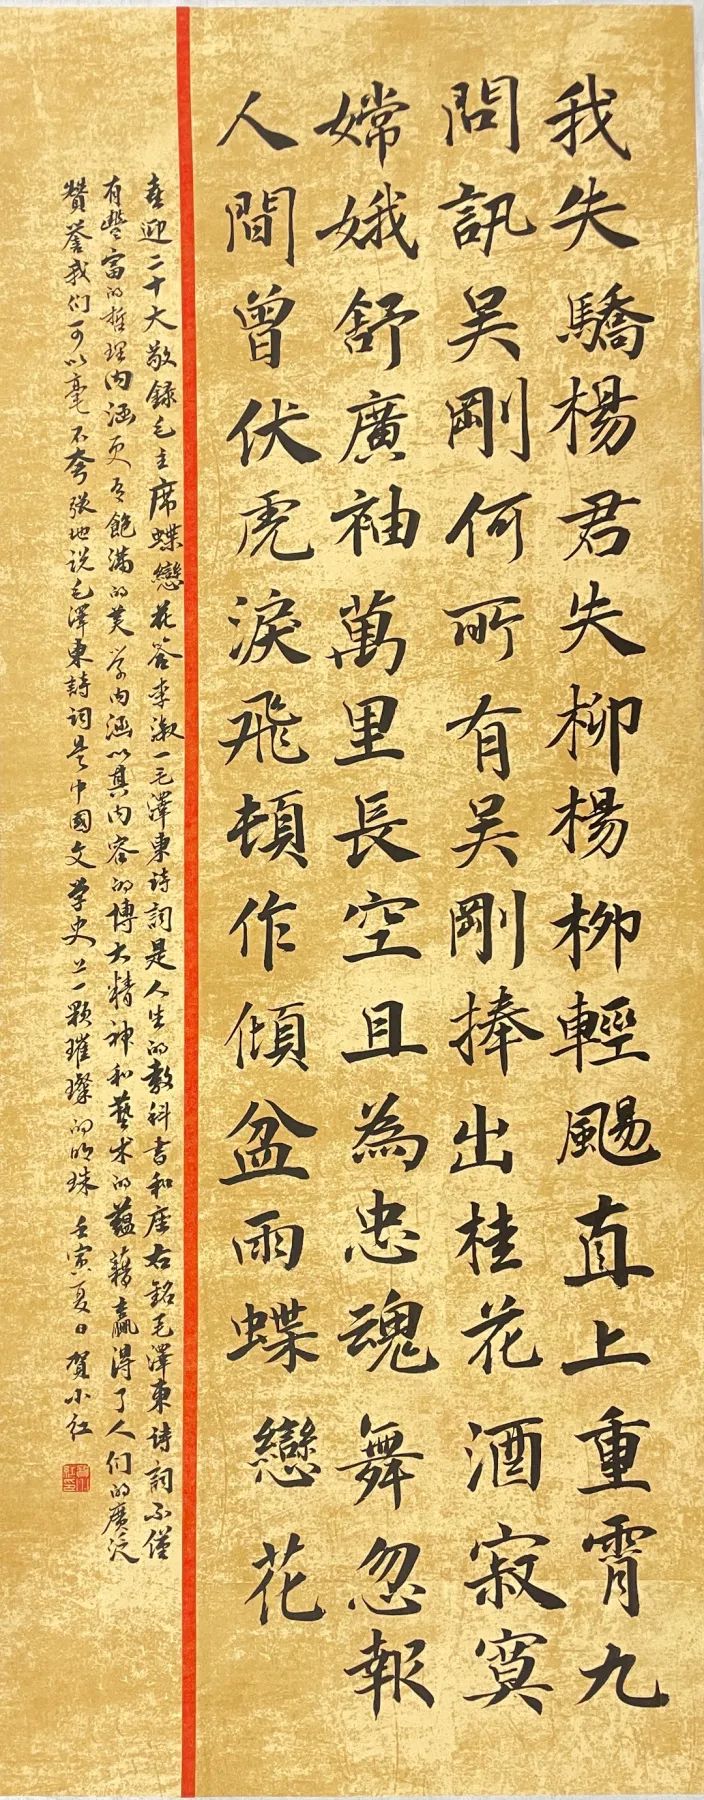 我失驕楊君失柳楊柳輕颺直上重霄九
問訊吴剛何所有吴剛捧出桂花酒寂寞
嫦娥舒廣袖萬里長空且為忠魂舞忽報
人間曾伏虎淚飛頓作傾盆雨蝶戀花
喜迎二十大敬録毛主席蝶戀花答李淑一毛澤東诗詞是人生的教科書和座右銘毛澤東诗詞不僅
有豐富的哲理内涵更有飽满的美学内涵以其内容的博大精神和藝术的蕴藉赢得了人们的廣泛
贊誉我们可以毫不夸张地说毛澤東詩词是中國文学史上一颗璀璨的明珠 壬寅夏日賀小红